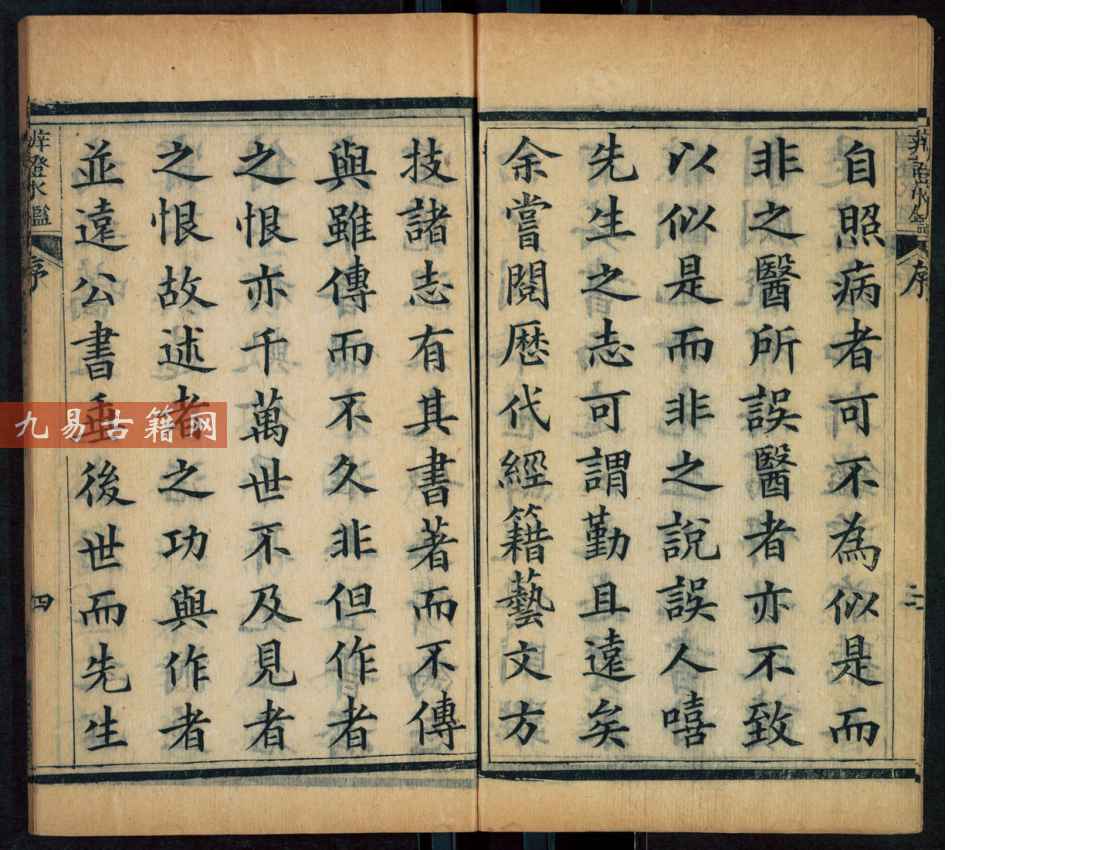 自照病者可不為似是而
非之醫所誤醫者亦不致
以似是而非之說誤人嘻
先生之志可謂勤且遠矣
余嘗閱歷代經籍藝文方
技諸志有其書著而不傳
與雖傳而不久非但作者
之恨亦千萬世不及見者
之恨故述者之功與作者
並遠公書垂後世而先生
序
序
四
九易古籍网